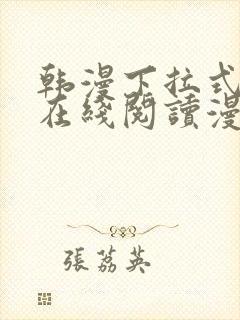 韩漫下拉式
在线阅讀漫
張荔英